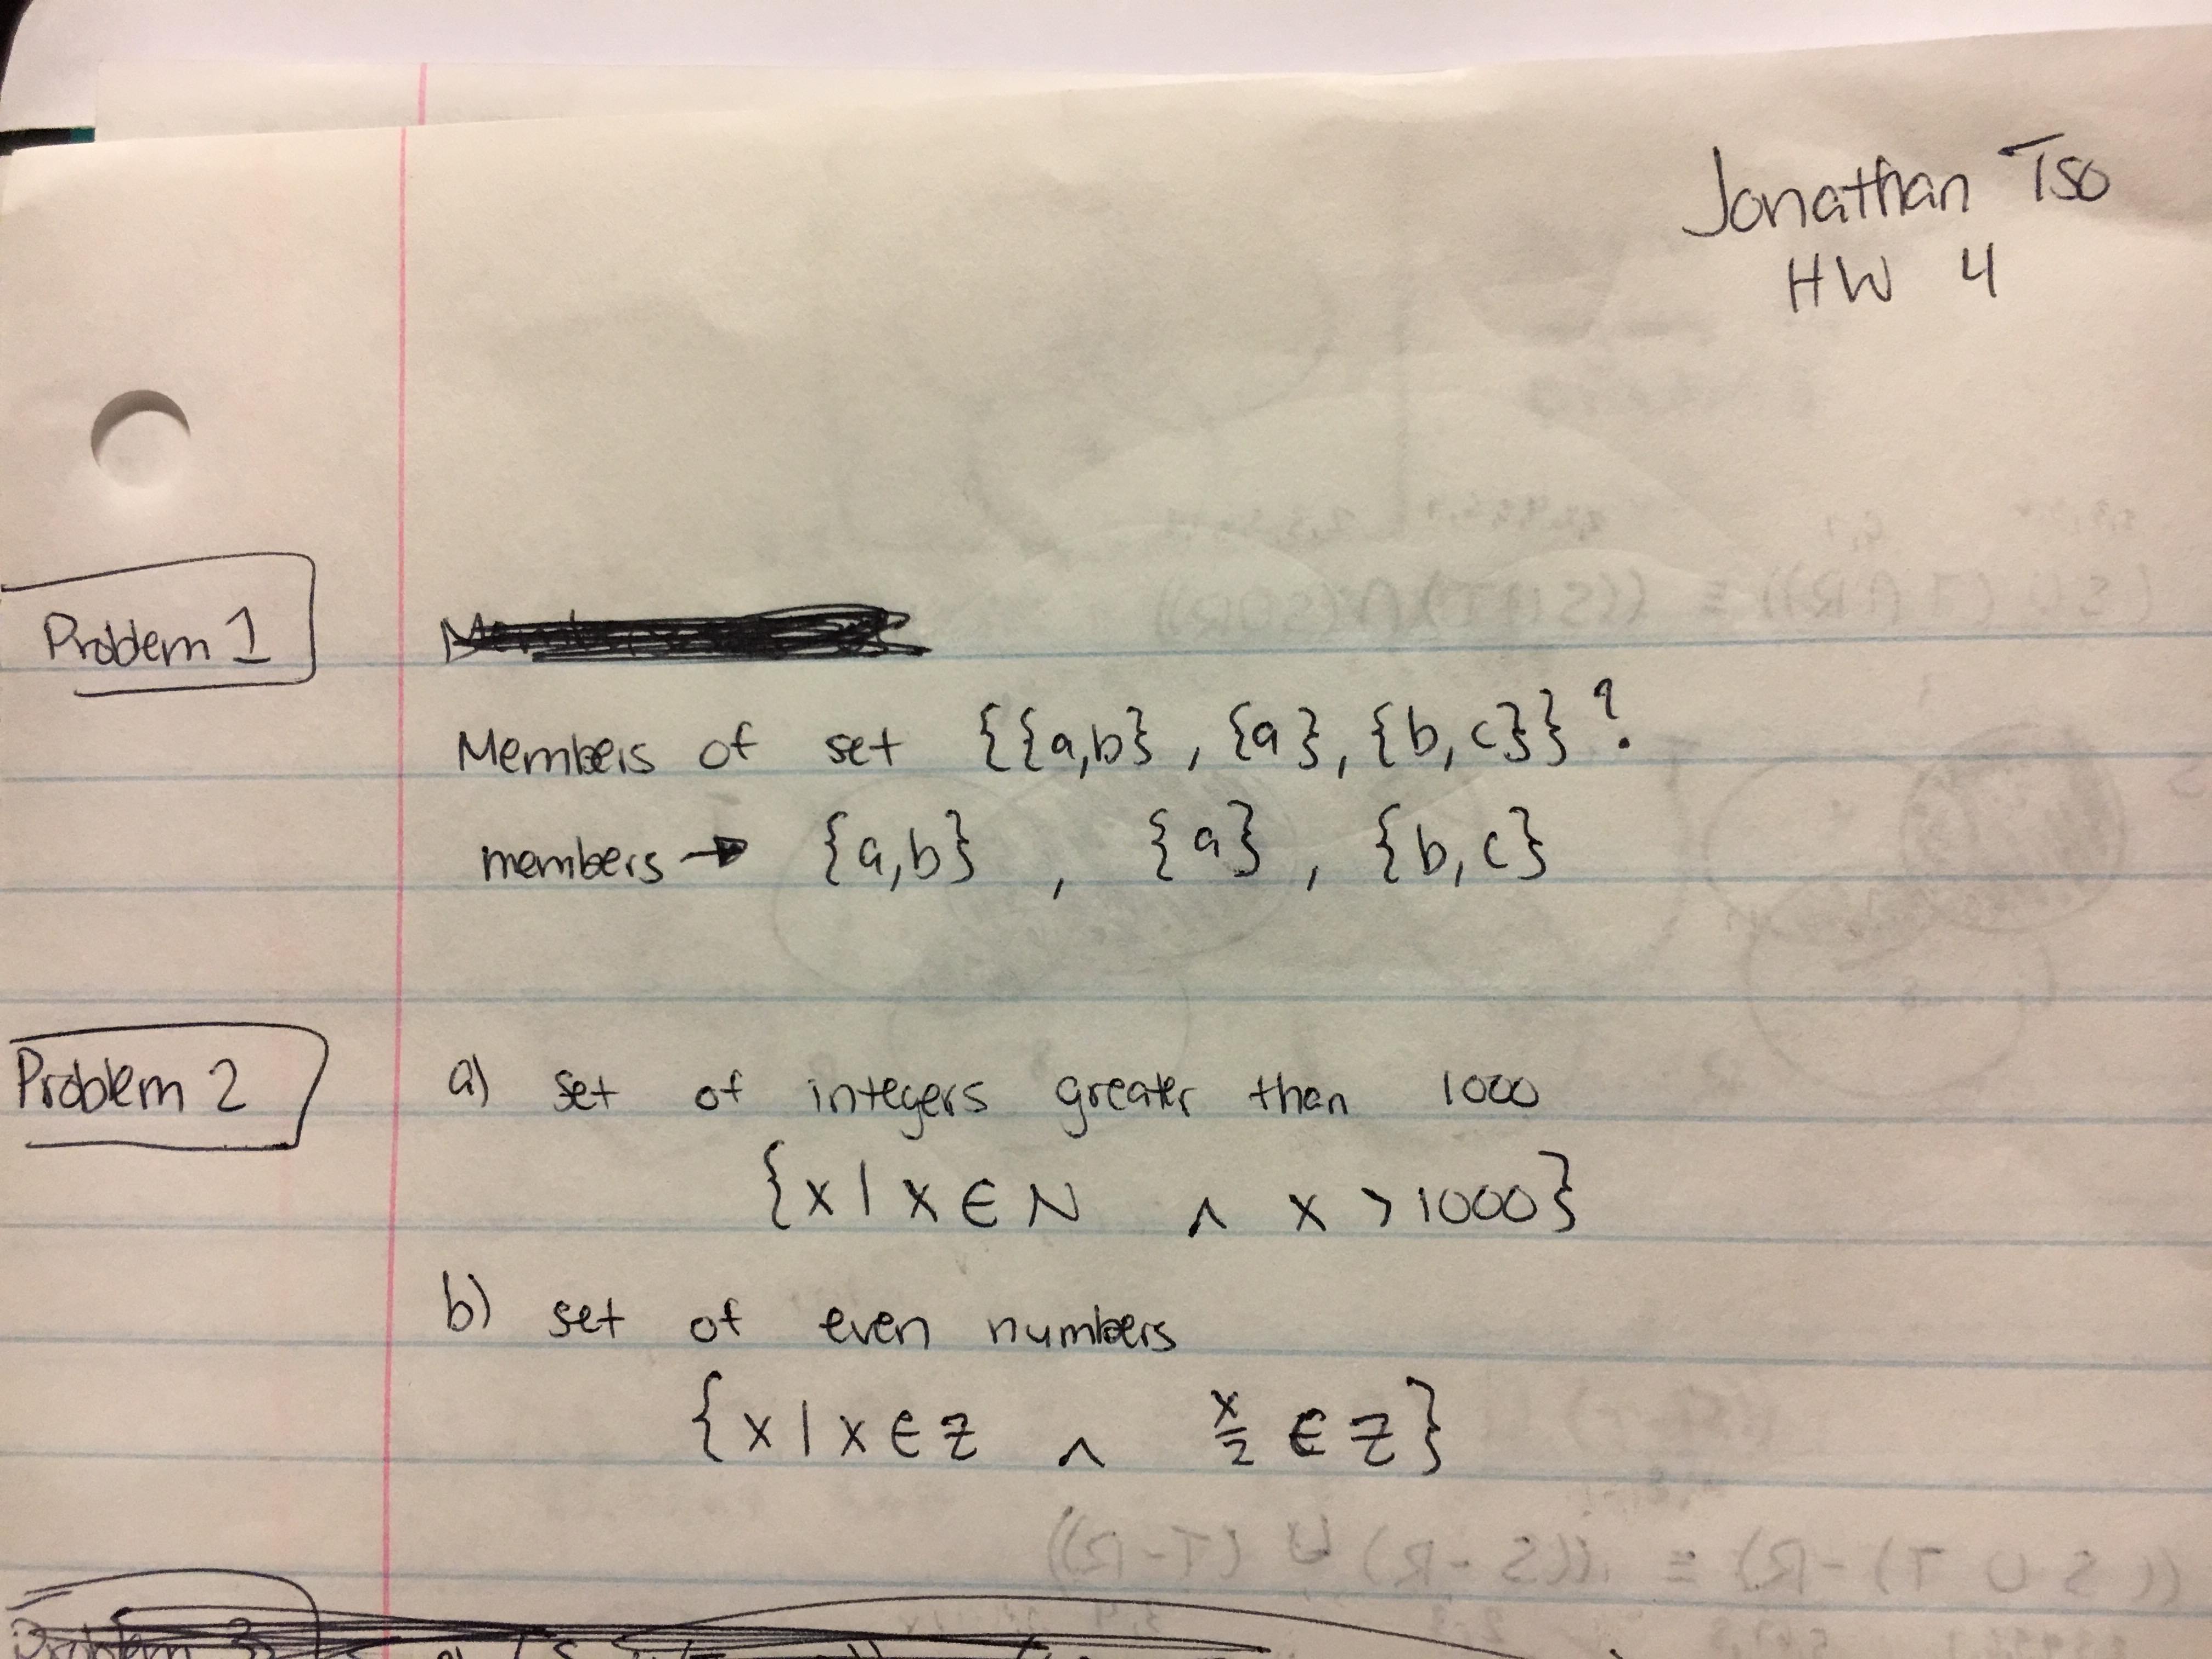 Jonathan Tso
HW 4
Problem 1
Members of set {{a,b}, {a}, {b,c}}?
members → {a,b} , {a} , {b,c}
Problem 2
a) set of integers greater than 1000
{x | x ∈ N ∧ x > 1000}
b) set of even numbers
{x | x ∈ Z ∧ x/2 ∈ Z}
((S ∪ T) - R) ≡ ((S - R) ∪ (T - R))
Problem 3